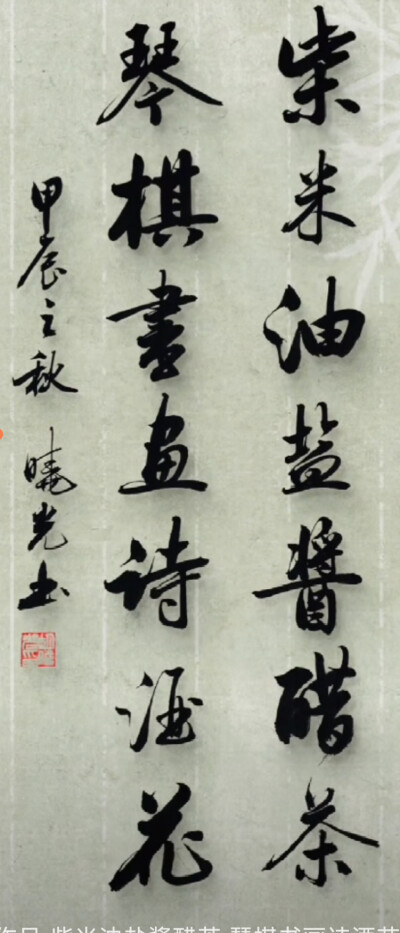 柴米油盐醬醋茶
琴棋書画詩酒花
甲辰之秋 曉光书
作品 柴米油盐酱醋茶 琴棋书画诗酒花